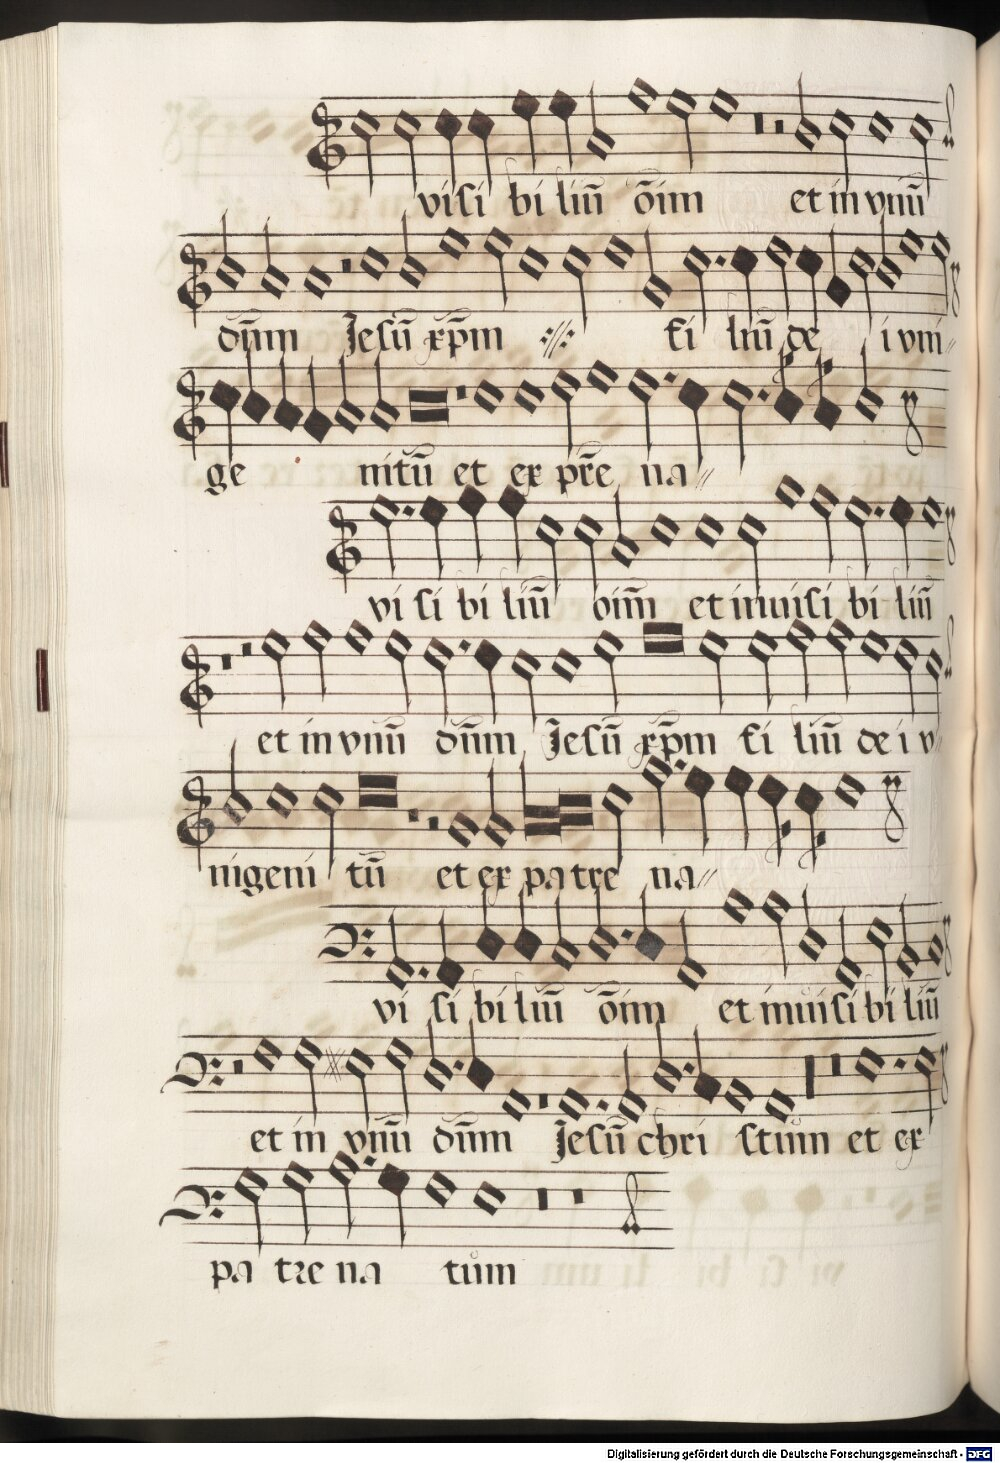 visi bi liū õim et in vnū
dñm Jesū xp̄m fi liū de i vni
ge nitū et ex pr̄e na
vi si bi liū oim̄ et inuisi bi liū
et in vnū dñm Jesū xp̄m fi liū de i v
nigeni tū et ex pa tre na
vi si bi liū õim et inuisi bi liū
et in vnū dñm Jesū chri stum et ex
pa tre na tum
Digitalisierung gefördert durch die Deutsche Forschungsgemeinschaft - DFG